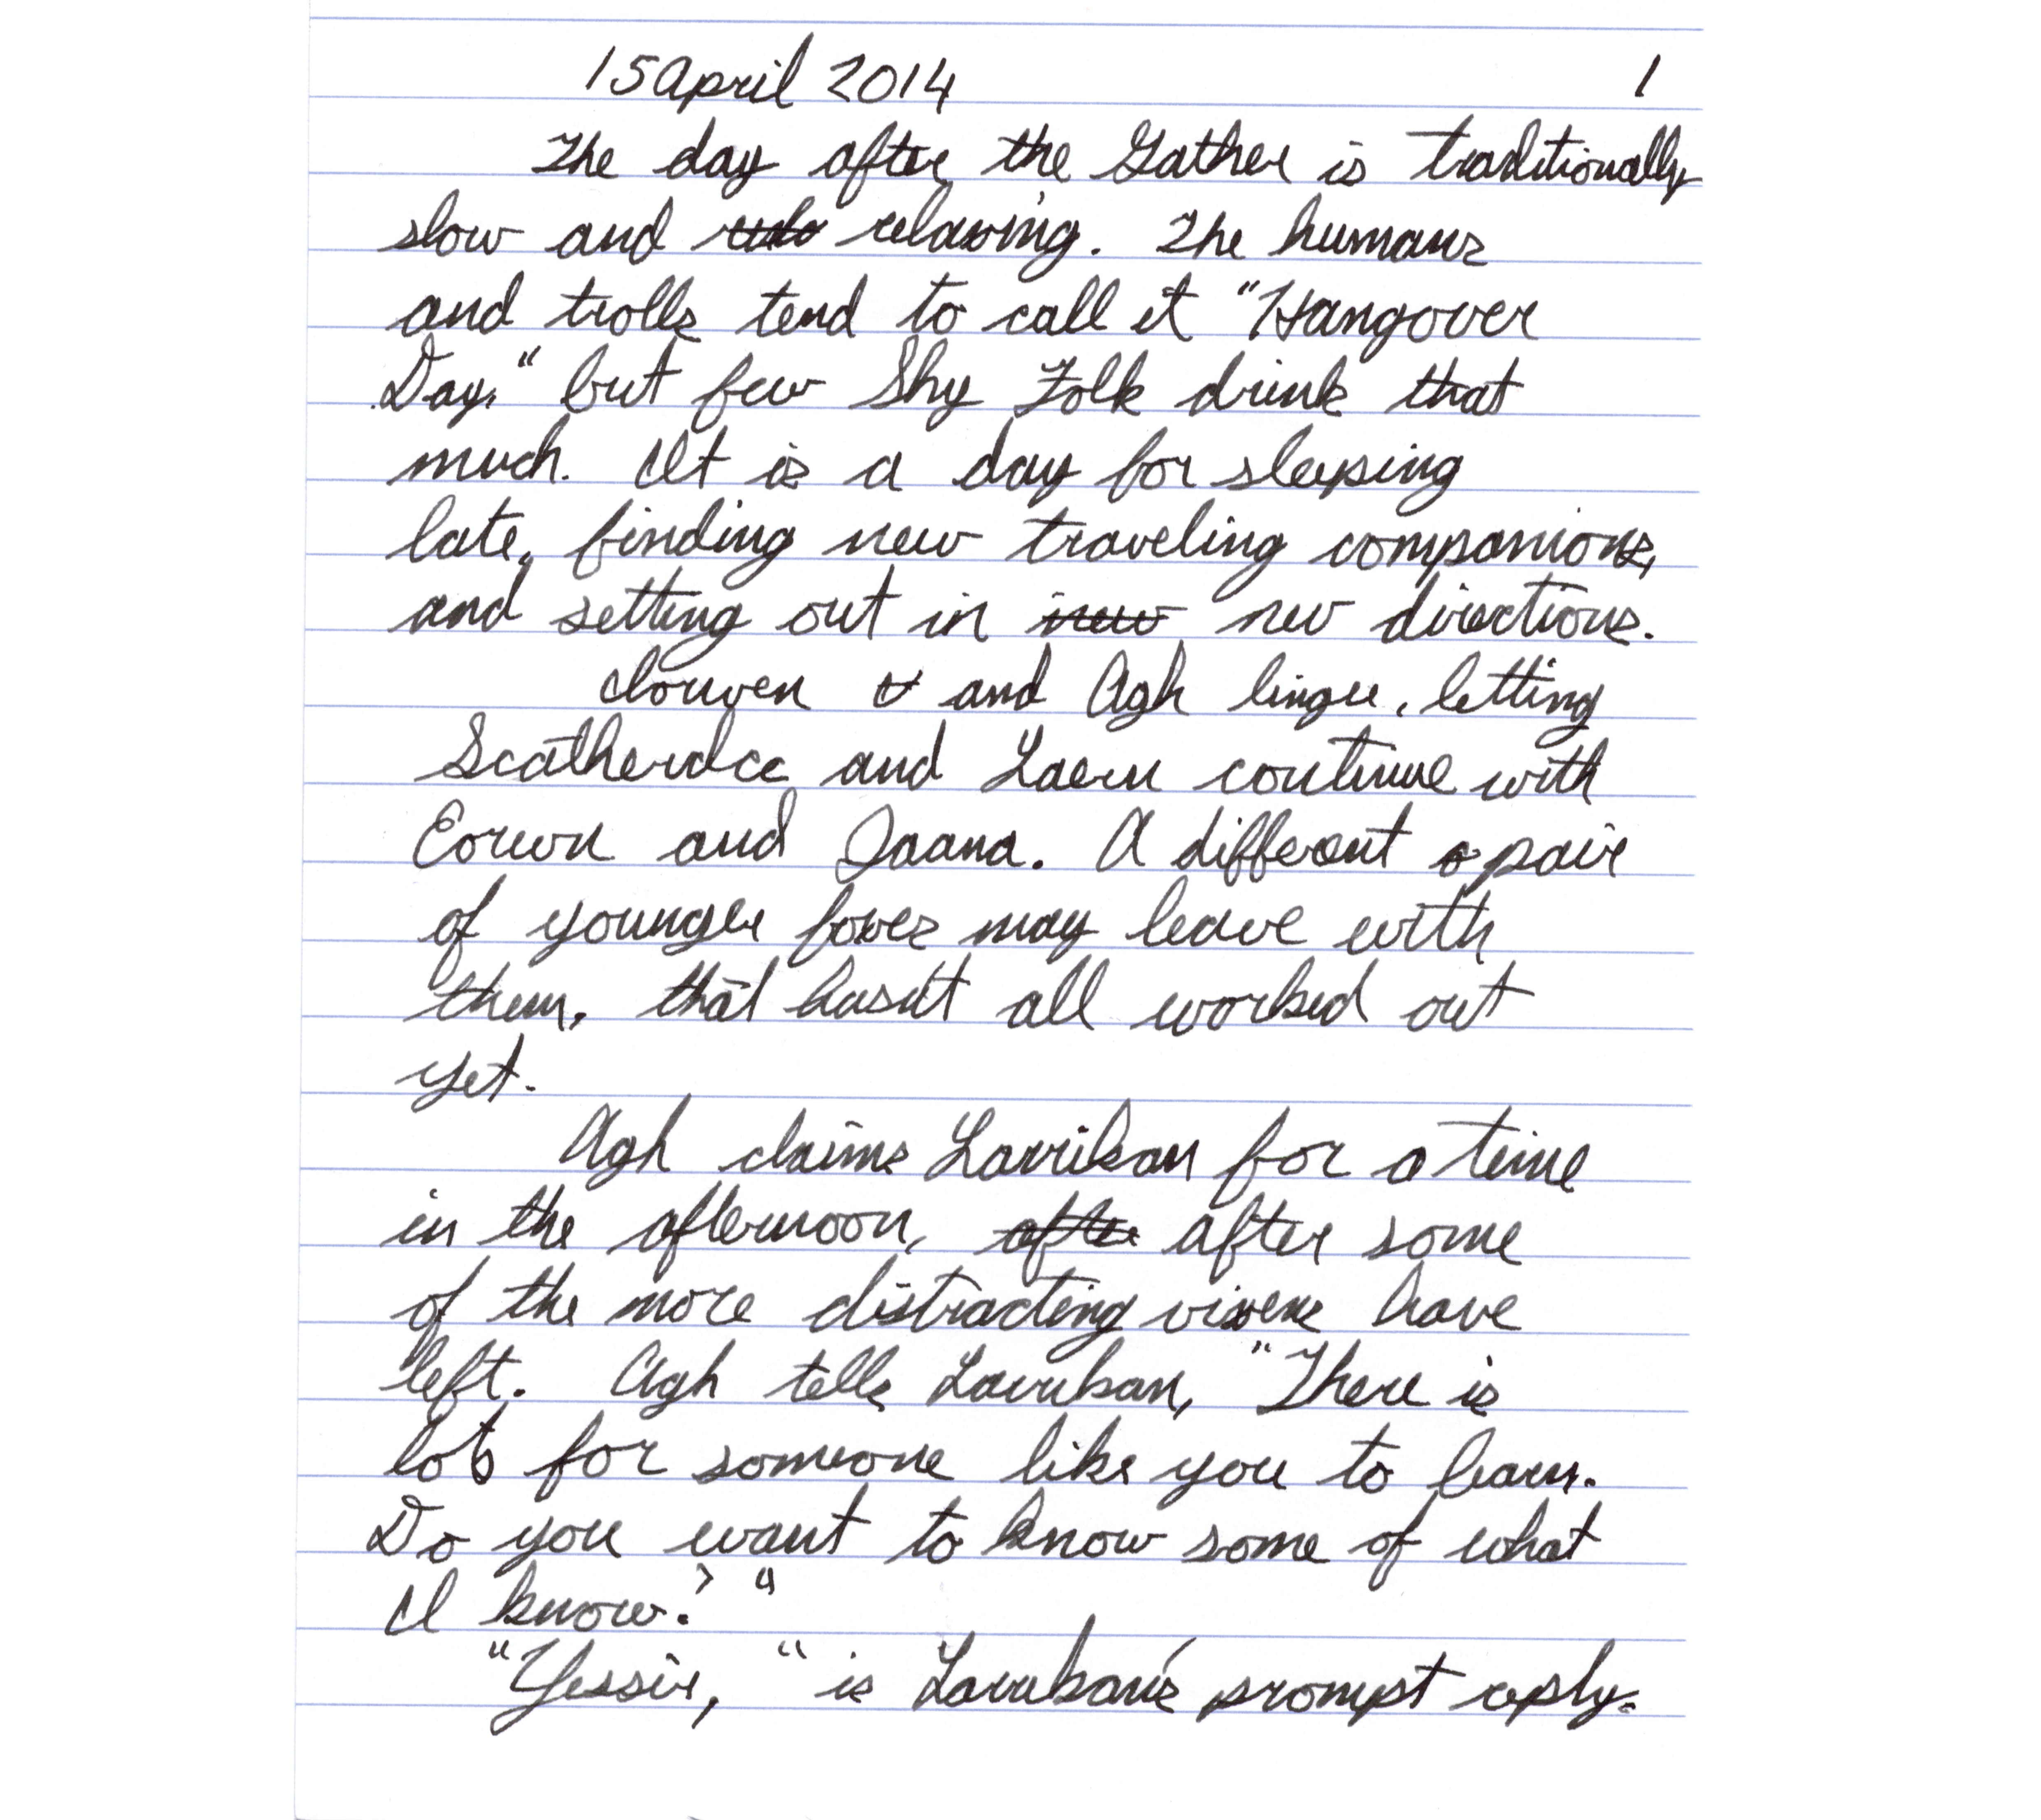 15 April 2014 1
The day after the Gather is traditionally
slow and relaxing. The humans
and trolls tend to call it "Hangover
Day," but few Shy Folk drink that
much. It is a day for sleeping
late, finding new traveling companions,
and setting out in new new directions.
and Agh linger, letting
and Laern continue with
and Jaana. A different pair
of younger foxes may leave with
them, that hasn't all worked out
yet.
Agh claims Larrikan for a time
in the afternoon, after after some
of the more distracting vixens have
left. Agh tells Larrikan, "There is
lots for someone like you to learn.
Do you want to know some of what
I know?"
"Yessir," is Larrikan's prompt reply.